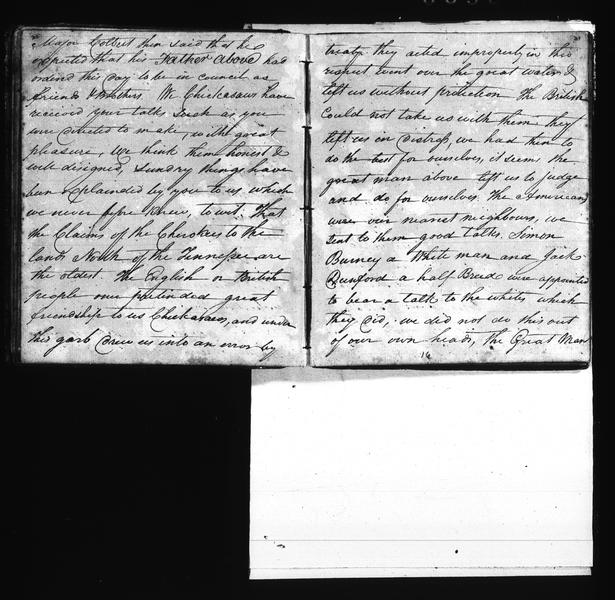 Major Colbert then said that he
expected that his Father above had
ordered this day to be in council as
friends & brothers. We Chickasaws have
received your talks such as you
were directed to make, with great
pleasure, we think them honest &
well disigned, Sundry things have
been explained by you to us which
we never before knew, to wit. That
the Claims of the Cherokees to the
lands North of the Tennessee are
the oldest. The English or British
people once pretinded great
friendship to us Chickasaws, and under
this garb drew us into an error by
treaty. they acted improperly in this
respect went over the great water &
left us without protection. The British
could not take us with them. they
left us in distress, we had then to
do the best for ourselves, it seems the
great man above left us to judge
and do for ourselves. The Americans
were our nearest neighbours, we
sent to them good talks. Simon
Burney a White man and Jack
a half Breed were appointed
to bear a talk to the whites which
they did, we did not do this out
of our own heads, the Great Man